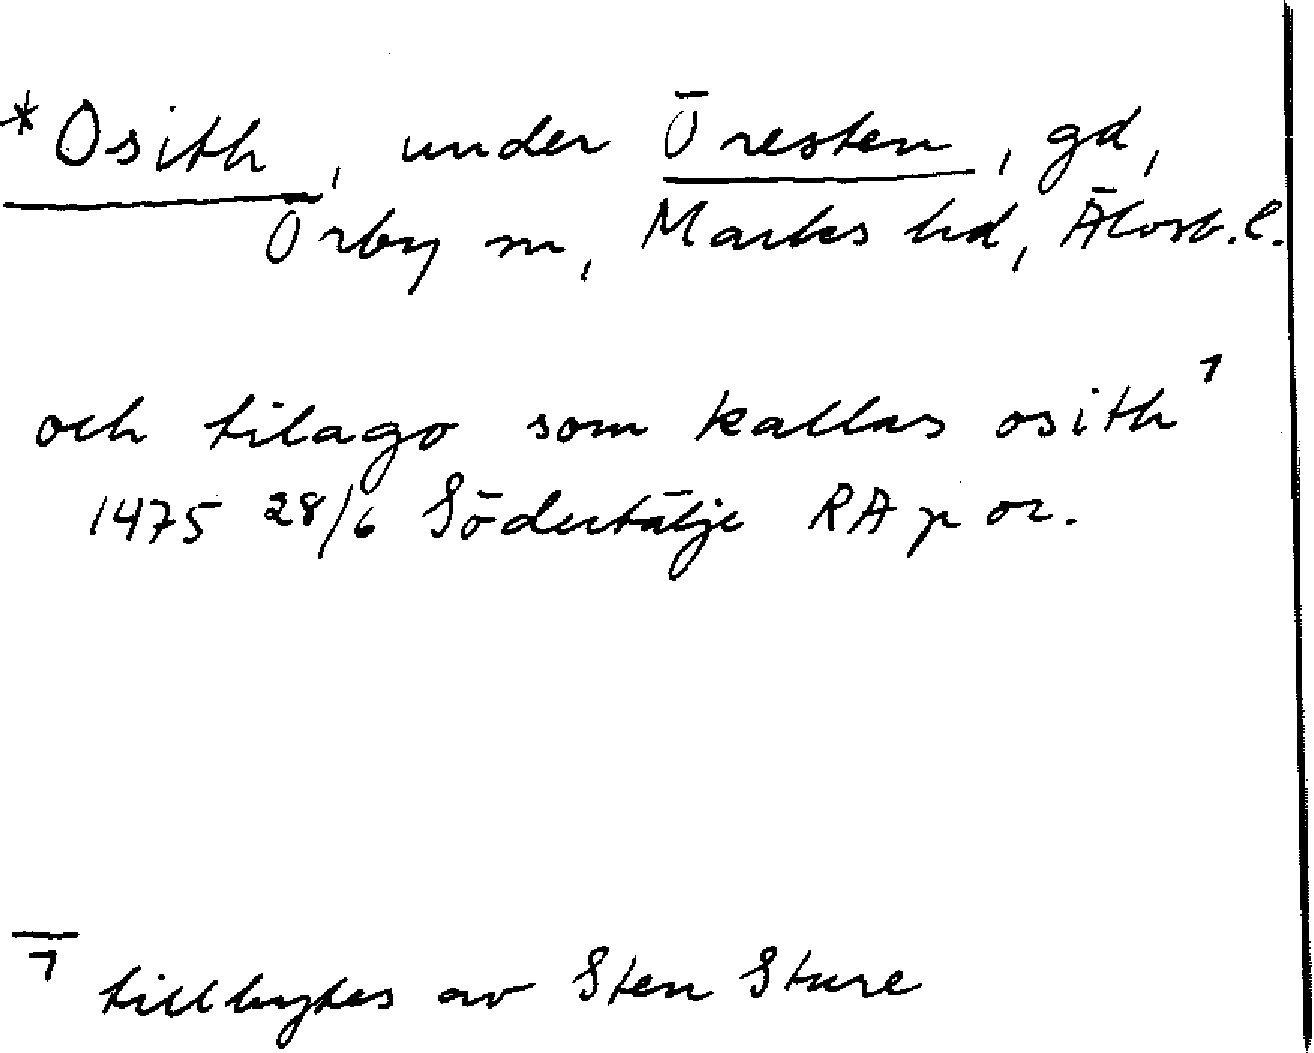 *Osith, under Öresten, gd,
Örby sn, Marks hd, Älvsb. l.
och tilago som kallas osith¹
1475 28/6 Södertälje RA p or.
¹ tillbytes av Sten Sture